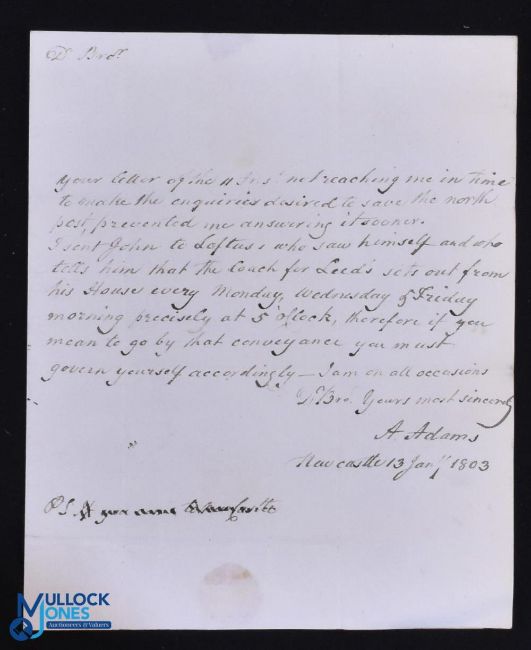 Dr Bror
your letter of the 11 Inst. not reaching me in time
to make the enquiries desired to save the north
post, prevented me answering it sooner.
I sent John to Loftus's who saw himself and who
tells him that the Coach for Leeds sets out from
his House every Monday, Wednesday & Friday
morning precisely at 5 o'Clock, therefore if you
mean to go by that conveyance you must
govern yourself accordingly — I am on all occasions
Dr Bror. Yours most sincerely
A. Adams
Newcastle 13 Jany 1803
PS. If you come
MULLOCK
JONES
Auctioneers & Valuers